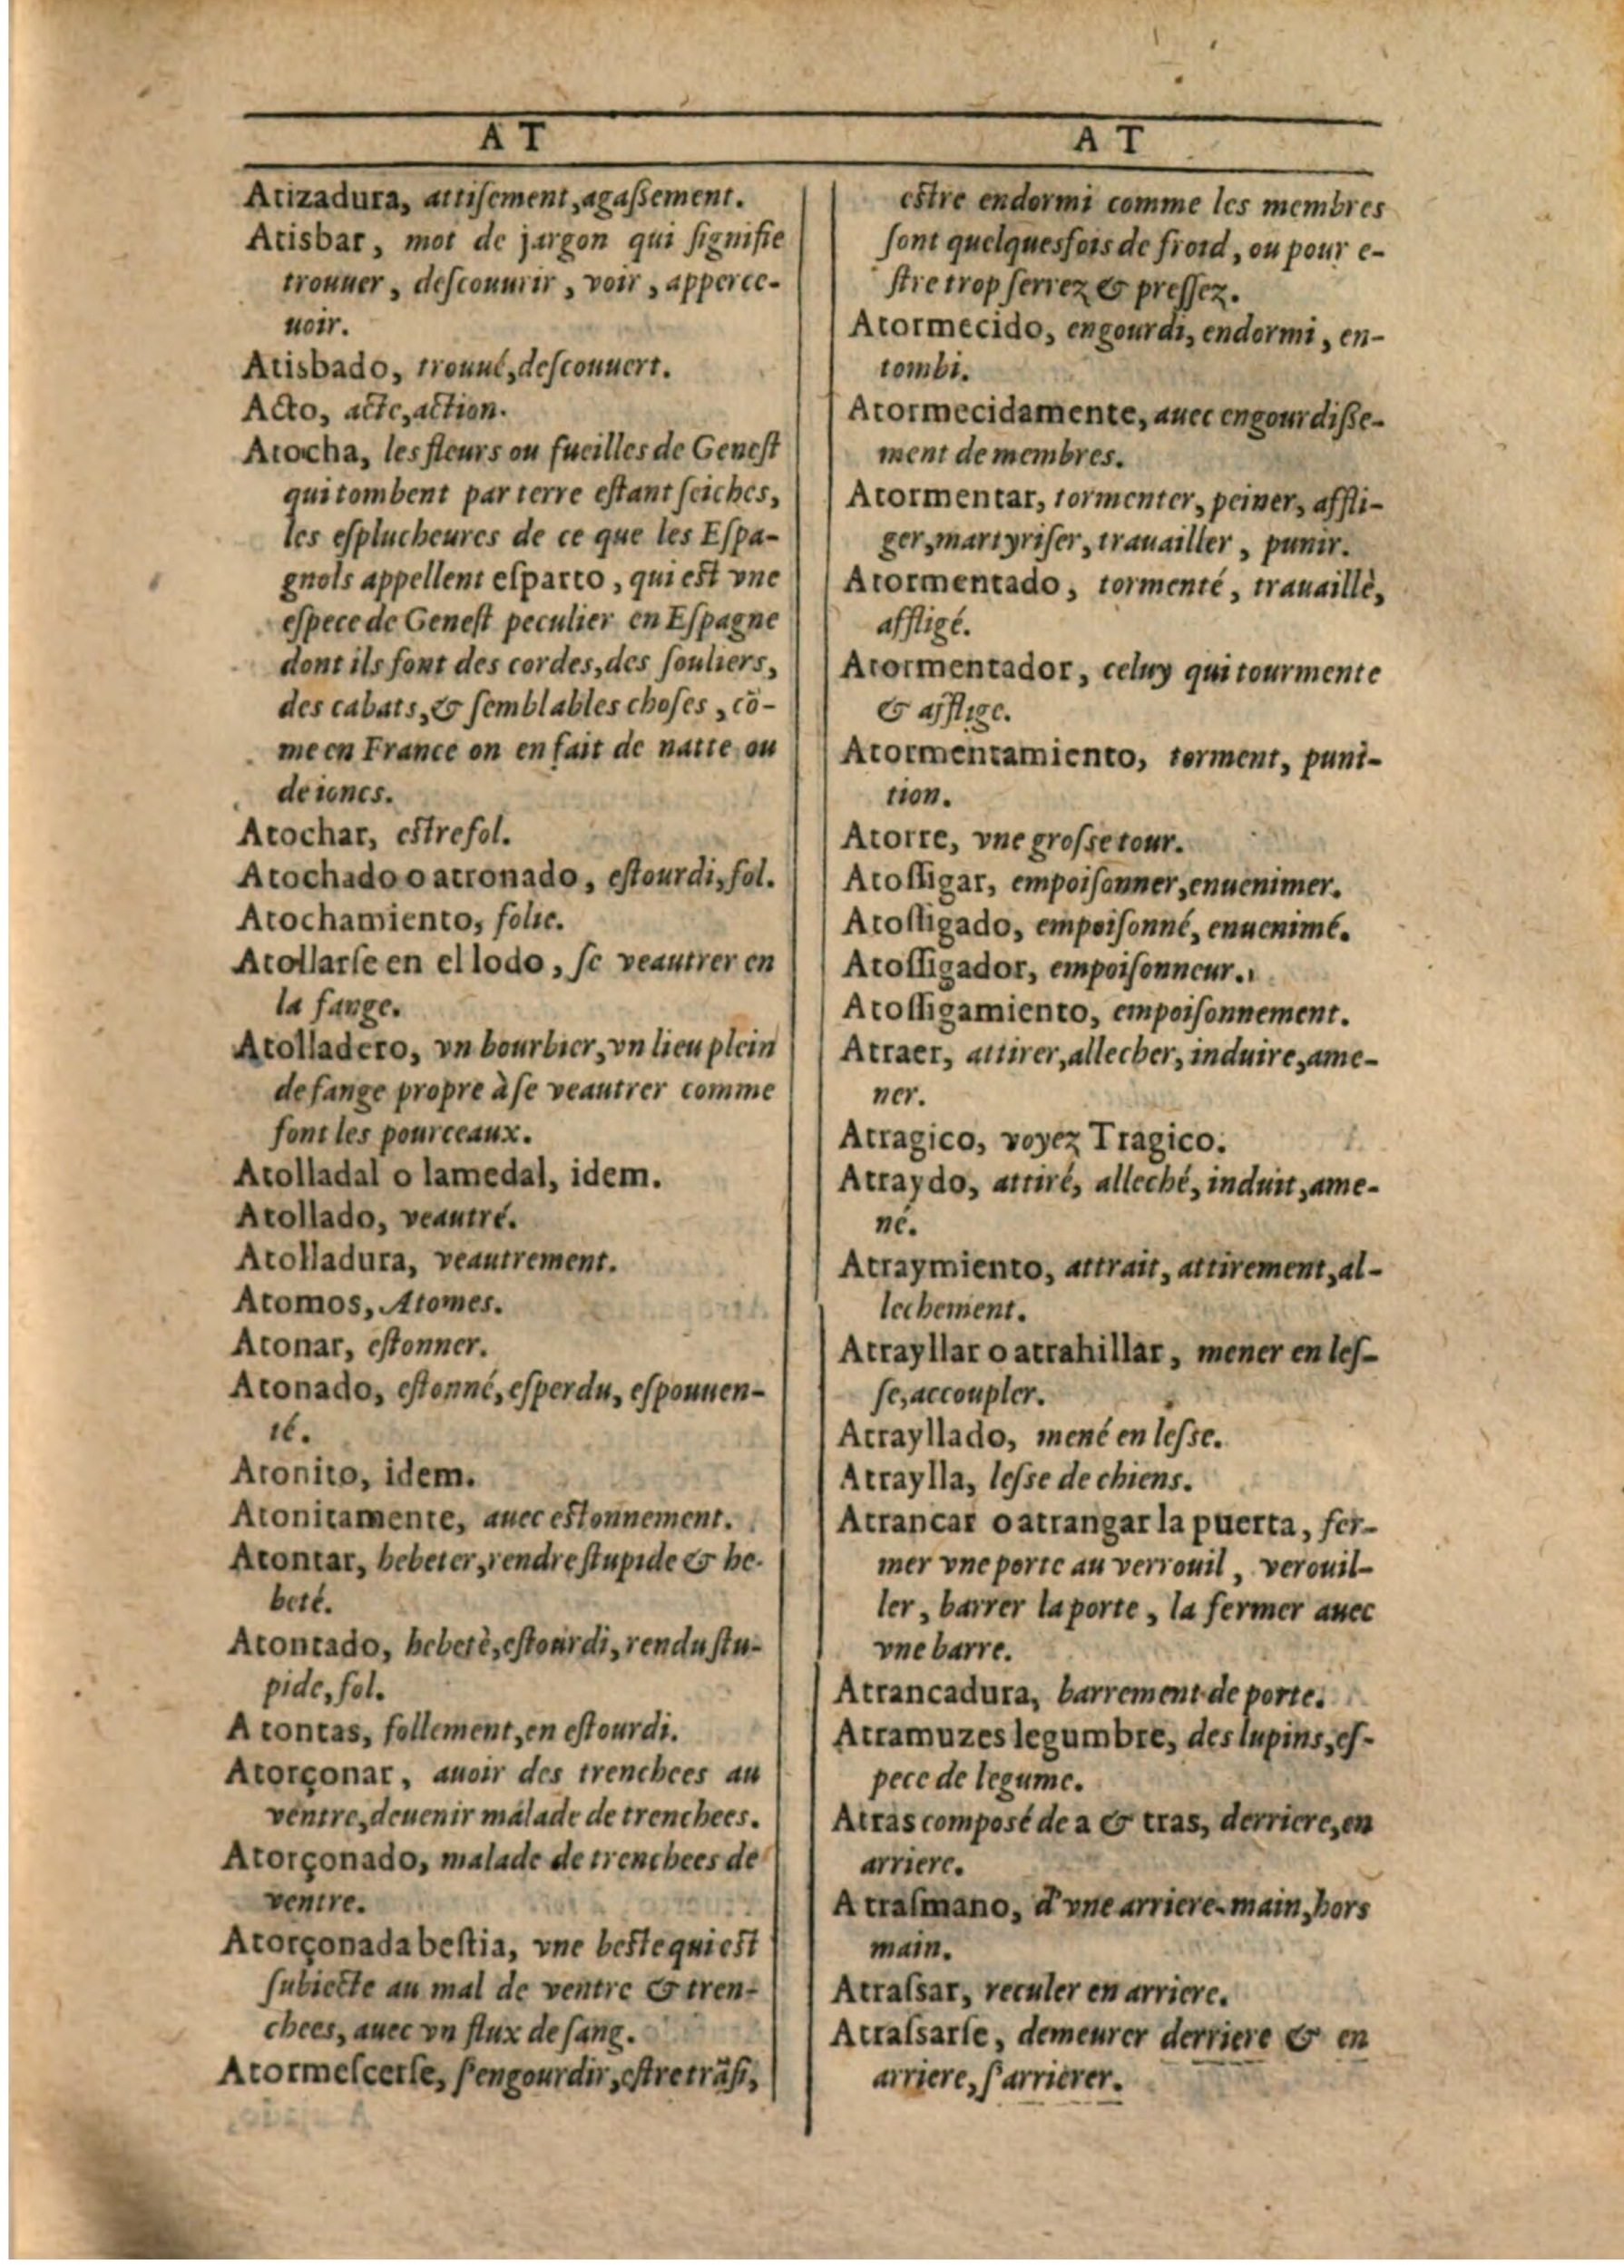 A T
Atizadura, attiſement, agaſsement.
Atisbar, mot de jargon qui ſignifie
trouuer, deſcouurir, voir, apperce-
uoir.
Atisbado, trouué, deſcouuert.
Acto, acte, action.
Atocha, les fleurs ou fueilles de Geneſt
qui tombent par terre eſtant ſeiches,
les eſplucheures de ce que les Eſpa-
gnols appellent eſparto, qui est vne
eſpece de Geneſt peculier en Eſpagne
dont ils font des cordes, des ſouliers,
des cabats, & ſemblables choſes, cõ-
me en France on en fait de natte ou
de ioncs.
Atochar, estre fol.
Atochado o atronado, eſtourdi, fol.
Atochamiento, folie.
Atollarſe en el lodo, ſe veautrer en
la fange.
Atolladero, vn bourbier, vn lieu plein
de fange propre à ſe veautrer comme
font les pourceaux.
Atolladal o lamedal, idem.
Atollado, veautré.
Atolladura, veautrement.
Atomos, Atomes.
Atonar, eſtonner.
Atonado, eſtonné, eſperdu, eſpouuen-
té.
Atonito, idem.
Atonitamente, auec estonnement.
Atontar, hebeter, rendre ſtupide & he-
beté.
Atontado, hebetè, eſtourdi, rendu ſtu-
pide, fol.
A tontas, follement, en eſtourdi.
Atorçonar, auoir des trenchees au
ventre, deuenir malade de trenchees.
Atorçonado, malade de trenchees de
ventre.
Atorçonada beſtia, vne beste qui est
ſubiecte au mal de ventre & tren-
chees, auec vn flux de ſang.
Atormeſcerſe, ſ'engourdir, eſtre trãſi,
A T
estre endormi comme les membres
ſont quelquesfois de froid, ou pour e-
ſtre trop ſerrez & preſſez.
Atormecido, engourdi, endormi, en-
tombi.
Atormecidamente, auec engourdiſse-
ment de membres.
Atormentar, tormenter, peiner, affli-
ger, martyriſer, trauailler, punir.
Atormentado, tormenté, trauaillè,
affligé.
Atormentador, celuy qui tourmente
& afflige.
Atormentamiento, torment, puni-
tion.
Atorre, vne groſse tour.
Atoſſigar, empoiſonner, enuenimer.
Atoſſigado, empoiſonné, enuenimé.
Atoſſigador, empoiſonneur.
Atoſſigamiento, empoiſonnement.
Atraer, attirer, allecher, induire, ame-
ner.
Atragico, voyez Tragico.
Atraydo, attiré, alleché, induit, ame-
né.
Atraymiento, attrait, attirement, al-
lechement.
Atrayllar o atrahillar, mener en leſ-
ſe, accoupler.
Atrayllado, mené en leſse.
Atraylla, leſse de chiens.
Atrancar o atrangar la puerta, fer-
mer vne porte au verrouil, verouil-
ler, barrer la porte, la fermer auec
vne barre.
Atrancadura, barrement de porte.
Atramuzes legumbre, des lupins, eſ-
pece de legume.
Atras composé de a & tras, derriere, en
arriere.
A traſmano, d'vne arriere-main, hors
main.
Atraſsar, reculer en arriere.
Atraſsarſe, demeurer derriere & en
arriere, ſ'arrierer.